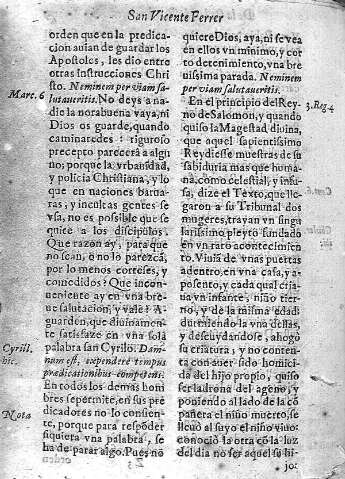 San Vicente Ferrer
orden que en la predica-
cion auian de guardar los
Apostoles, les dio entre
otras instrucciones Chri
sto. Neminem per viam sa-
Marc. 6
lutaueritis. No deys a na-
die la norabuena vaya, ni
Dios os guarde, quando
caminaredes: riguroso
precepto parecerá a algu
no; porque la vrbanidad,
y policia Christiana, y lo
que en naciones barua-
ras, y incultas gentes se
vsa, no es possible que se
quite a los discipulos.
Que razon ay, para que
no sean, o no lo parezcā,
por lo menos corteses, y
comedidos? Que incon-
ueniente ay en vna bre-
ue salutacion, y vale? A-
guarden, que diuinamen-
te satisfaze en vna sola
palabra san Cyrilo. Dam-
Cyrill.
hic.
num est, expendere tempus
prædicationibus competens.
En todos los demas hom
bres se permite, en sus pre
dicadores no lo consien-
Nota
te, porque para respōder
siquiera vna palabra, se
ha de parar algo. Pues no
quiere Dios, aya, ni se vea
en ellos vn minimo, y cor
to detenimiento, vna bre
uissima parada. Neminem
per viam salutaueritis.
En el principio del Rey-
3. Reg. 4
no de Salomon, y quando
quiso la Magestad diuina,
que aquel sapientissimo
Rey diesse muestras de su
sabiduria mas que huma-
na, como celestial, y infu-
sa, dize el Texto, que lle-
garon a su Tribunal dos
mugeres, trayan vn singu
larissimo pleyto fundado
en vn raro acontecimien
to. Viuiā de vnas puertas
adentro, en vna casa, y a-
posento, y cada qual cria
ua vn infante, niño tier-
no, y de la misma edad:
durmiendo la vna dellas,
y descuydandose, ahogò
su criatura; y no conten-
ta con auer sido homici-
da del hijo propio, quiso
ser ladrona del ageno, y
poniendo al lado de la cō
pañera el niño muerto, se
lleuò al suyo el niño viuo:
conociò la otra cō la luz
del dia no ser aquel su hi-
jo: